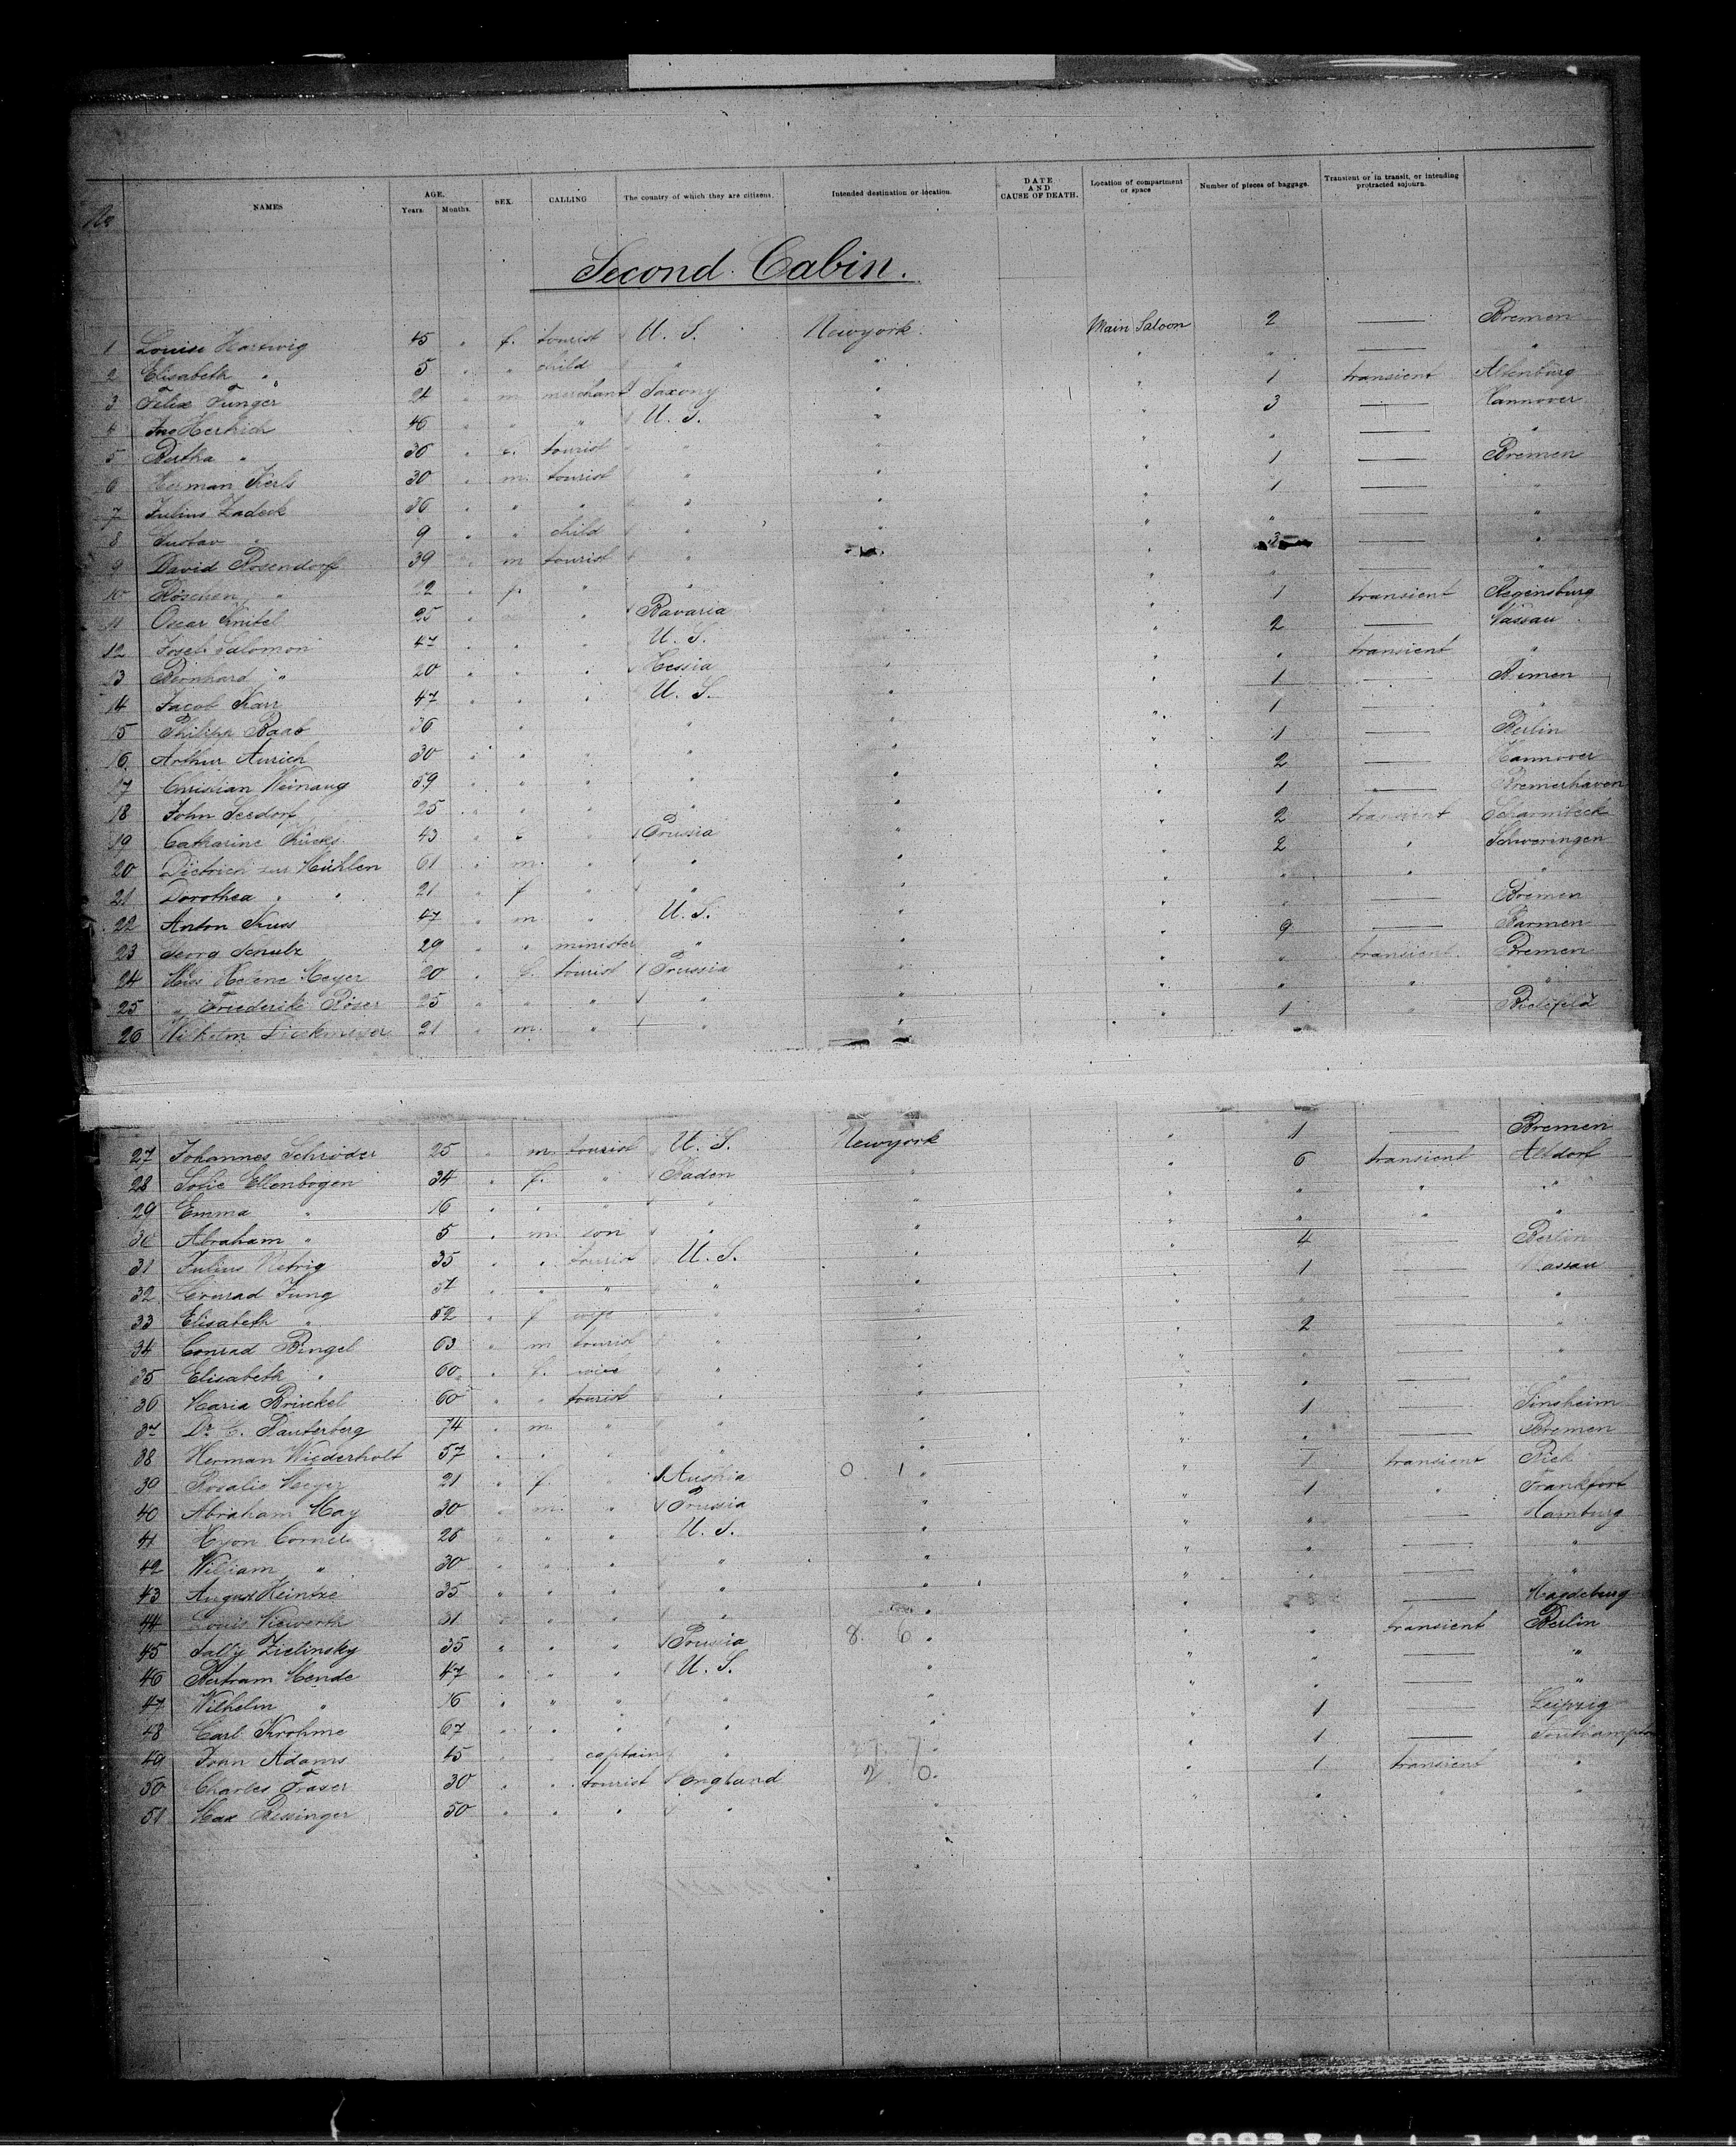 No
NAMES AGE. Years. Months. SEX. CALLING The country of which they are citizens. Intended destination or location. DATE AND CAUSE OF DEATH. Location of compartment or space Number of pieces of baggage. Transient or in transit, or intending protracted sojourn.
Second Cabin.
1 Louise Hartwig 45 " f. tourist U. S. Newyork Main Saloon 2 — Bremen
2 Elisabeth " 5 " " child " " " " — "
3 Felix Funger 24 " m merchant Saxony " " 1 transient Altenburg
4 " " " U. S. " " 3 — Hannover
5 Bertha " 36 " f. tourist " " " " — "
6 Herman Kerls 30 " m. tourist " " " 1 — Bremen
7 Julius Zadeck 36 " " " " " " 1 — "
8 Gustav " 9 " " child " " " " — "
9 David Rosendorf 39 " m tourist " " " 3 — "
10 Röschen " 22 " f. " " " " — "
11 Oscar Knitel 25 " " Bavaria " 1 transient Regensburg
12 Josef Salomon 47 " " " U. S. " 2 — Nassau
13 Bernhard " 20 " " " Hessia " " " transient "
14 Jacob Karr 47 " " " U. S. " " 1 — Bremen
15 Philipp Raab 36 " " " " " 1 — "
16 Arthur Aurich 30 " " " " " " 1 — Berlin
17 Christian Weinaug 59 " " " " " " 2 — Hannover
18 John Seedorf 25 " " " " " " 1 — Bremerhaven
19 Catharine Lücks 43 " " " Prussia " " 2 transient Scharmbeck
20 Dietrich zur Mühlen 61 " m. " " " " 2 " Schweringen
21 Dorothea " " 21 " f " " " " " " "
22 Anton Kuss 47 " m " U. S. " " " — Bremen
23 Georg Schulz 29 " " minister " " " 9 — Barmen
24 Miss Helene Meyer 20 " f. tourist Prussia " " " transient Bremen
25 " Friederike Röser 25 " " " " " " " " "
26 Wilhelm Dieckmeyer 21 " m. " " " " 1 " Bielefeld
27 Johannes Schröder 25 " m. tourist U. S. Newyork " 1 — Bremen
28 Sofie Ellenbogen 34 " f. " Baden " " 6 transient Altdorf
29 Emma " 16 " " " " " " " " "
30 Abraham " 5 " m. son " " " " " "
31 Julius Netrig 35 " " tourist U. S. " " 4 — Berlin
32 Conrad Jung 57 " " " " " 1 — Nassau
33 Elisabeth " 52 " f wife " " " " — "
34 Conrad Bingel 63 " m tourist " " " 2 — "
35 Elisabeth " 60 " f. wife " " " " — "
36 Maria Brückel 60 " " tourist " " " " — "
37 Dr. Rauterberg 74 " m. " " " " 1 — Sinsheim
38 Herman Wiederholt 57 " " " " " " " — Bremen
39 Rosalie Meyer 21 " f. " Austria 0. 1 " " 1 transient
40 Abraham May 30 " m. " Prussia " " 1 " Frankfort
41 Hyon Cornel " " " U. S. " " " — Hamburg
42 William " 30 " " " " " " " — "
43 August Heintze 35 " " " " " " " — "
44 Louis Niewerth 31 " " " " " " — Magdeburg
45 Sally Zielinsky 35 " " " Prussia 8. 6 " " " transient Berlin
46 Bertram Mende 47 " " " U. S. " " " — "
47 Wilhelm " 16 " " " " " " " — "
48 Carl Krohme 67 " " " " " " 1 — Leipzig
49 John Adams 45 " " captain " " " 1 — Southampton
50 Charles Fraser 30 " " tourist England 2 0. " 1 transient "
51 Max 50 " " " " " " " " "